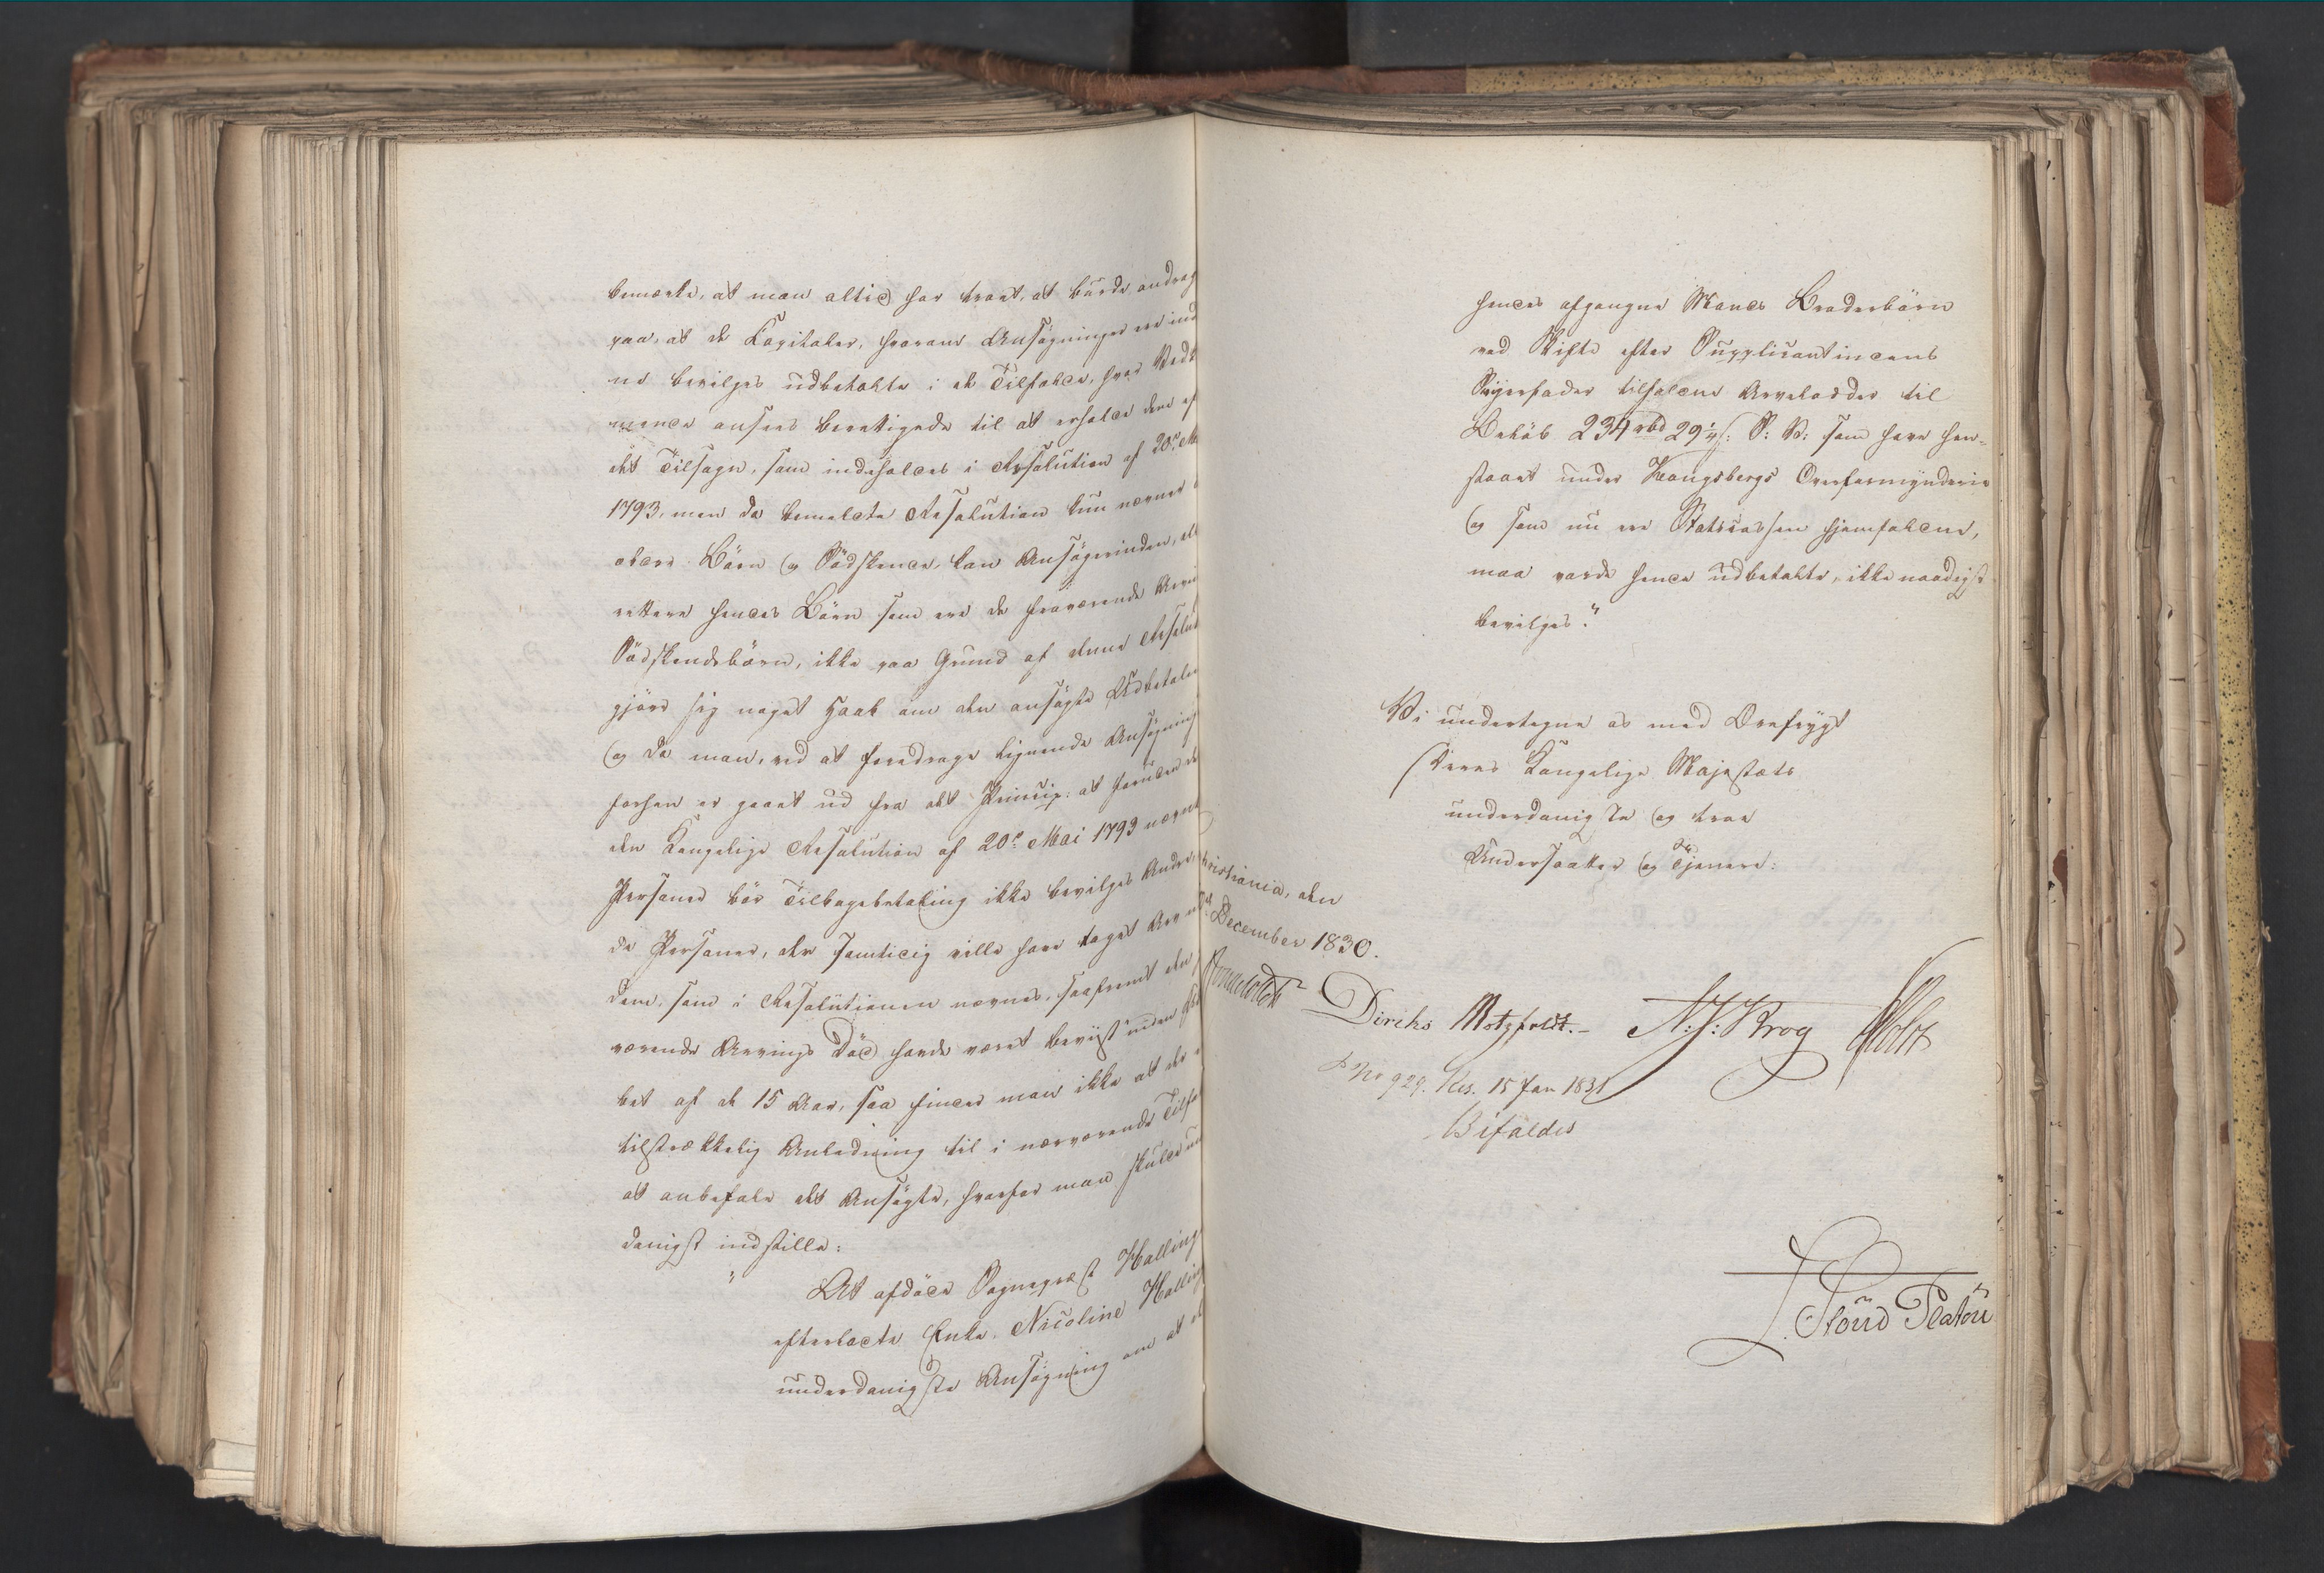 bemærke, at man altid har troet, at burde andrag
paa, at de Capitaler, hvorom Ansøgninger ere ind
ne bevilges udbetalte i de Tilfælde, hvor Vedk
mende ansees berettigede til at erholde dem ef
det Tilsagn, som indeholdes i Resolution af 20de M
1793, men da bemeldte Resolution kun nævner
aldre Børn og Sødskende, kan Ansøgerinden, ell
rettere hendes Børn som ere de fraværende Arvi
Sødskendebørn, ikke paa Grund af denne Resolut
gjøre sig noget Haab om den ansøgte Udbetaling
og da man, ved at foredrage lignende Ansøgning
forhen er gaaet ud fra det Princip: at foruden de
den Kongelige Resolution af 20de Mai 1793 nævnte
Personer bør Tilbagebetaling ikke bevilges Andre,
de Personer, der samtidig ville have taget Arv m
dem, som i Resolutionen nævnes, saafremt den
værende Arvings Død havde været beviist inden
bet af de 15 Aar, saa finder man ikke at der
tilstrækkelig Anledning til i nærværende Tilfæ
at anbefale det Ansøgte, hvorfor man skulde un
danigst indstille:
" At afdøde Sogneprest Halling
efterladte Enke, Nicoline Halling
underdanigste Ansøgning om at de
hendes afgangne Mands Broderbørn
ved Skifte efter Supplicantindens
Svigerfader tilfaldne Arvelodder til
Beløb 234 rbd 29 1/4 s: S: V: som have hen-
staaet under Kongsbergs Overformynderie
og som nu ere Statscassen hjemfaldne,
maa vorde hende udbetalte, ikke naadigst
bevilges."
Vi undertegne os med Ærefrygt
Deres Kongelige Majestæts
underdanigste og troe
Undersaatter og Tjenere:
hristiania, den
December 1830.
Diriks Motzfeldt.- N: J: Krog Holst
P No 929. Res. 15 Jan 1831
Bifaldes
L. Stoud Platou